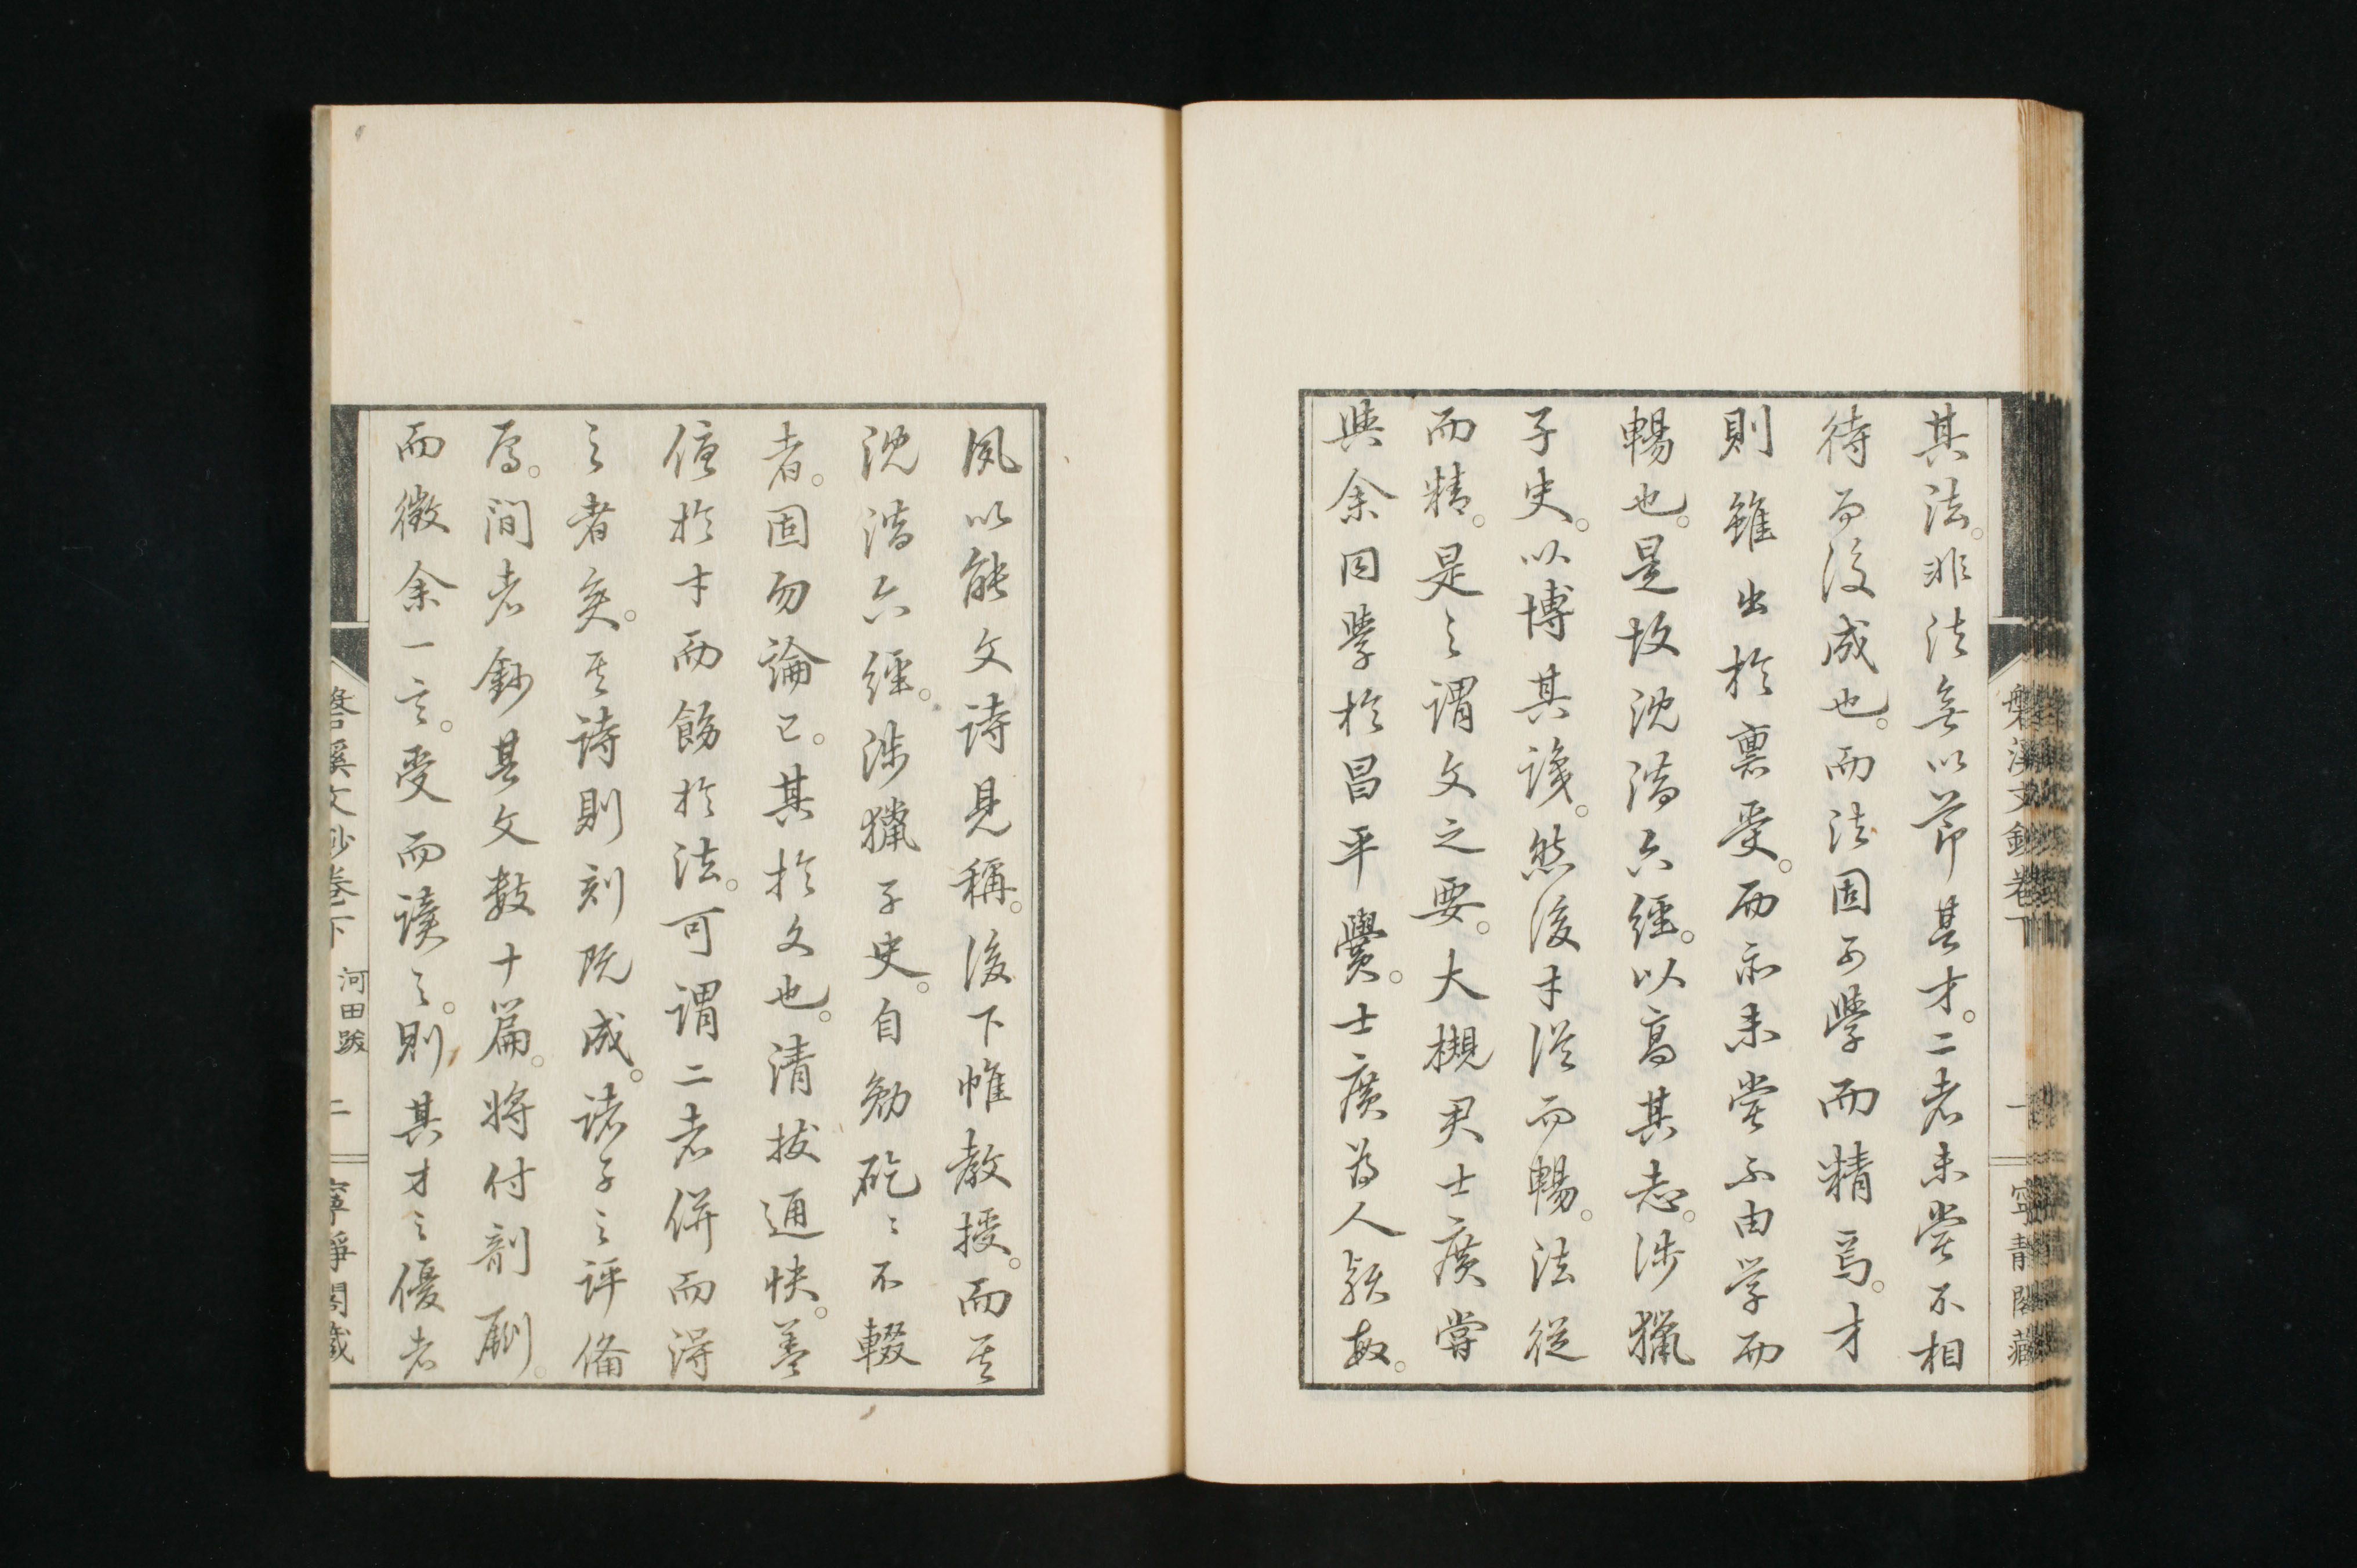 其法。非法無以節其才。二者未嘗不相
待而後成也。而法固可學而精焉。才
則雖出於禀受。而亦未嘗不由学而
暢也。是故沈潛六經。以高其志。涉獵
子史。以博其識。然後才従而暢。法従
而精。是之謂文之要。大槻君士廣嘗
與余同學於昌平黌。士廣為人穎敏。
夙以能文詩見稱。後下帷教授。而其
沈潛六經。涉獵子史。自勉矻々不輟
者。固勿論已。其於文也。清拔通快。善
優於才而飭於法。可謂二者併而得
之者矣。其詩則刻既成。諸子之評備
焉。間者鈔其文數十篇。將付剞劂。
而徵余一言。受而讀之。則其才之優者
磐溪文鈔卷下
一
寧靜閣藏
磐溪文鈔卷下
河田跋
二
寧靜閣藏